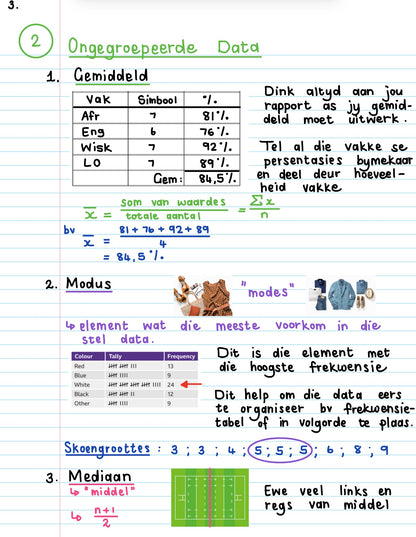 3.
2 Ongegroepeerde Data
1. Gemiddeld
Vak Simbool %.
Afr 7 81%.
Eng 6 76%.
Wisk 7 92%.
LO 7 89%.
Gem: 84,5%.
Dink altyd aan jou
rapport as jy gemid-
deld moet uitwerk.
Tel al die vakke se
persentasies bymekaar
en deel deur hoeveel-
heid vakke
x̄ = som van waardes / totale aantal = Σx / n
bv x̄ = 81 + 76 + 92 + 89 / 4
= 84,5%.
2. Modus
"modes"
↳ element wat die meeste voorkom in die
stel data.
Colour Tally Frequency
Red 13
Blue 9
White 24
Black 12
Other 9
Dit is die element met
die hoogste frekwensie
Dit help om die data eers
te organiseer bv frekwensie-
tabel of in volgorde te plaas.
Skoengroottes : 3 ; 3 ; 4 ; 5 ; 5 ; 5 ; 6 ; 8 ; 9
3. Mediaan
↳ "middel"
↳ n+1 / 2
Ewe veel links en
regs van middel